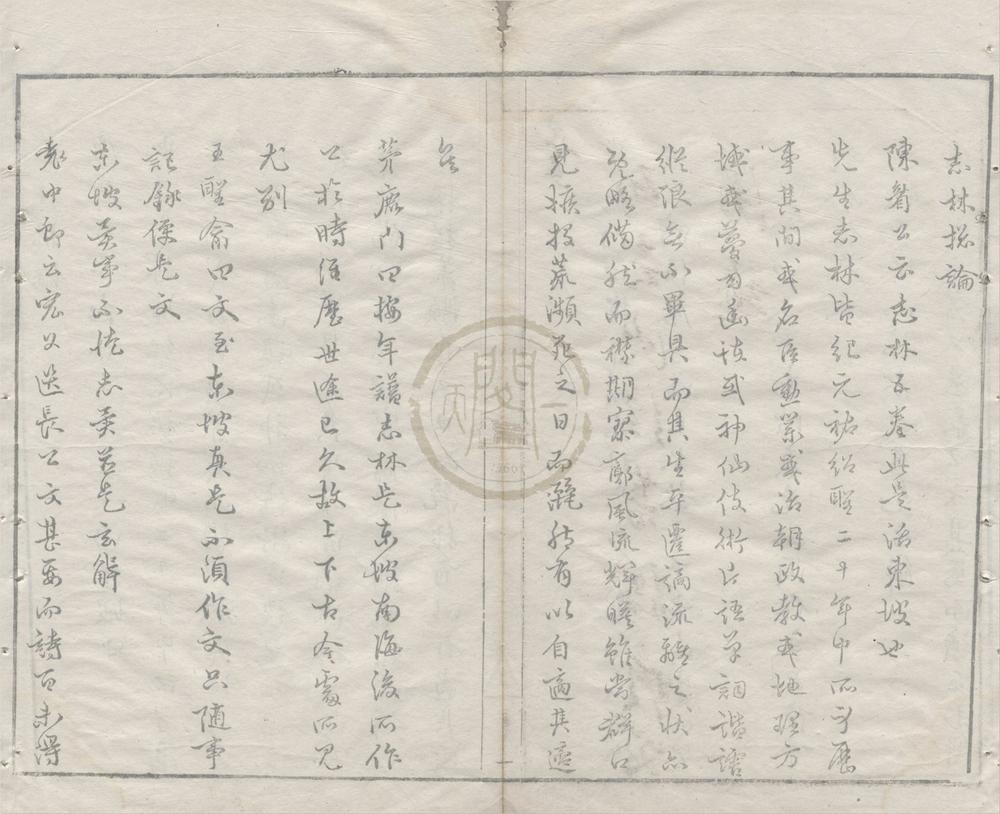 志林總論
陳眉公云志林五卷此是活東坡也
先生志林皆紀元祐紹聖二十年中所身歷
事其間或名臣勳業或治朝政教或地理方
域或夢幻幽怪或神仙伎術片語單詞諧謔
縱浪無不畢具而其生平遷謫流離之狀亦
既略備然而襟期寥廓風流輝映雖當群口
見嫉投荒瀕死之日而灑然有以自適其適
矣
茅鹿門曰按年譜志林是東坡南海後所作
公於時經歷世途已久故上下古今處所見
尤別
王聖俞曰文至東坡真是不須作文只隨事
記錄便是文
東坡羨
袁中郎云宏父選長公文甚而詩百未得